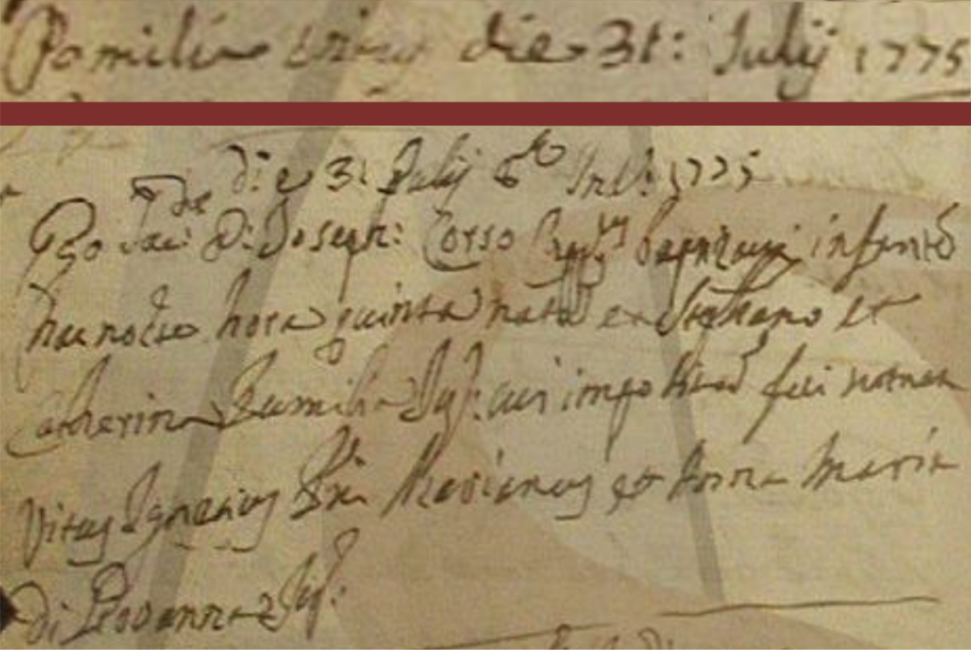 Pomilia Vitus die 31: Julij 1775
die 31 Julij 8 Ind: 1775
Ego Sac: D: Joseph: Corso baptizavi infantē
hac nocte hora quinta natū ex Stephano et
Catherina Pumilia Jug: cui impositū fuit nomen
Vitus Ignatius PPni Marianus et Anna Maria
di Giovanna Jug: